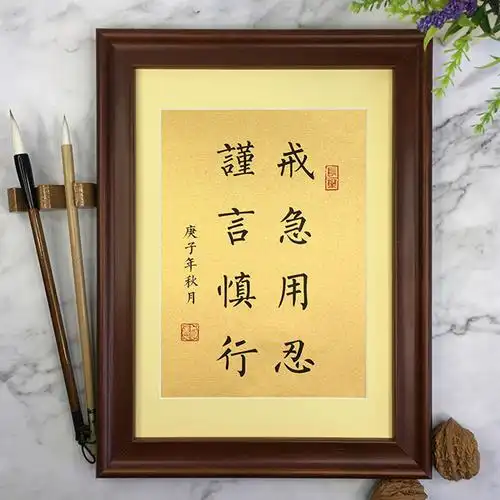 戒急用忍
謹言慎行
庚子年秋月